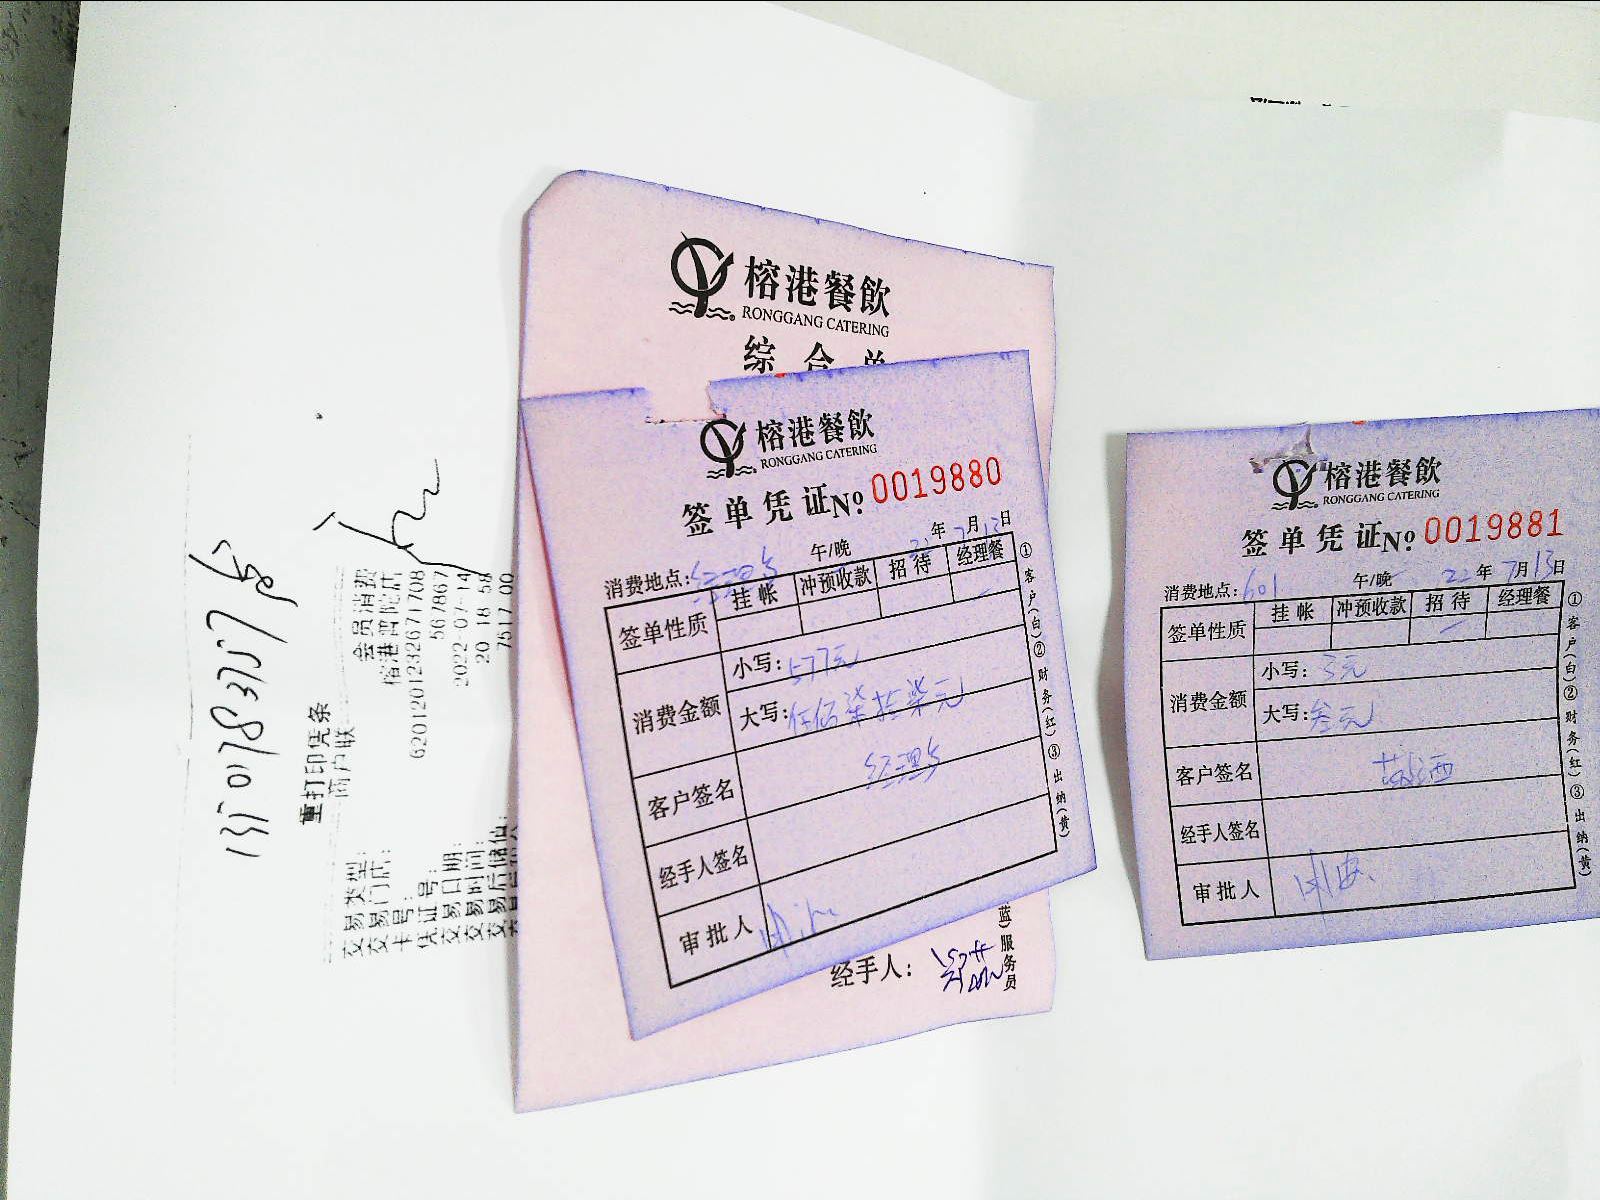 重打印凭条
商户联
交易类型：
会员消费
交易门店：
榕港普陀店
卡号：
6201201232671708
凭证号：
567867
交易日期：
2022-07-14
交易时间：
20 18 58
交易后储值：
7517 00
榕港餐飲
RONGGANG CATERING
综合单
经手人：
服务员
榕港餐飲
RONGGANG CATERING
签单凭证№ 0019880
年7月13日
消费地点：经理餐 午/晚
签单性质 挂帐 冲预收款 招待 经理餐
消费金额 小写：577元
大写：伍佰柒拾柒元
客户签名 经理餐
经手人签名
审批人
①客户(白)②财务(红)③出纳(黄)
榕港餐飲
RONGGANG CATERING
签单凭证№ 0019881
22年7月13日
消费地点：601 午/晚
签单性质 挂帐 冲预收款 招待 经理餐
消费金额 小写：3元
大写：叁元
客户签名
经手人签名
审批人
①客户(白)②财务(红)③出纳(黄)